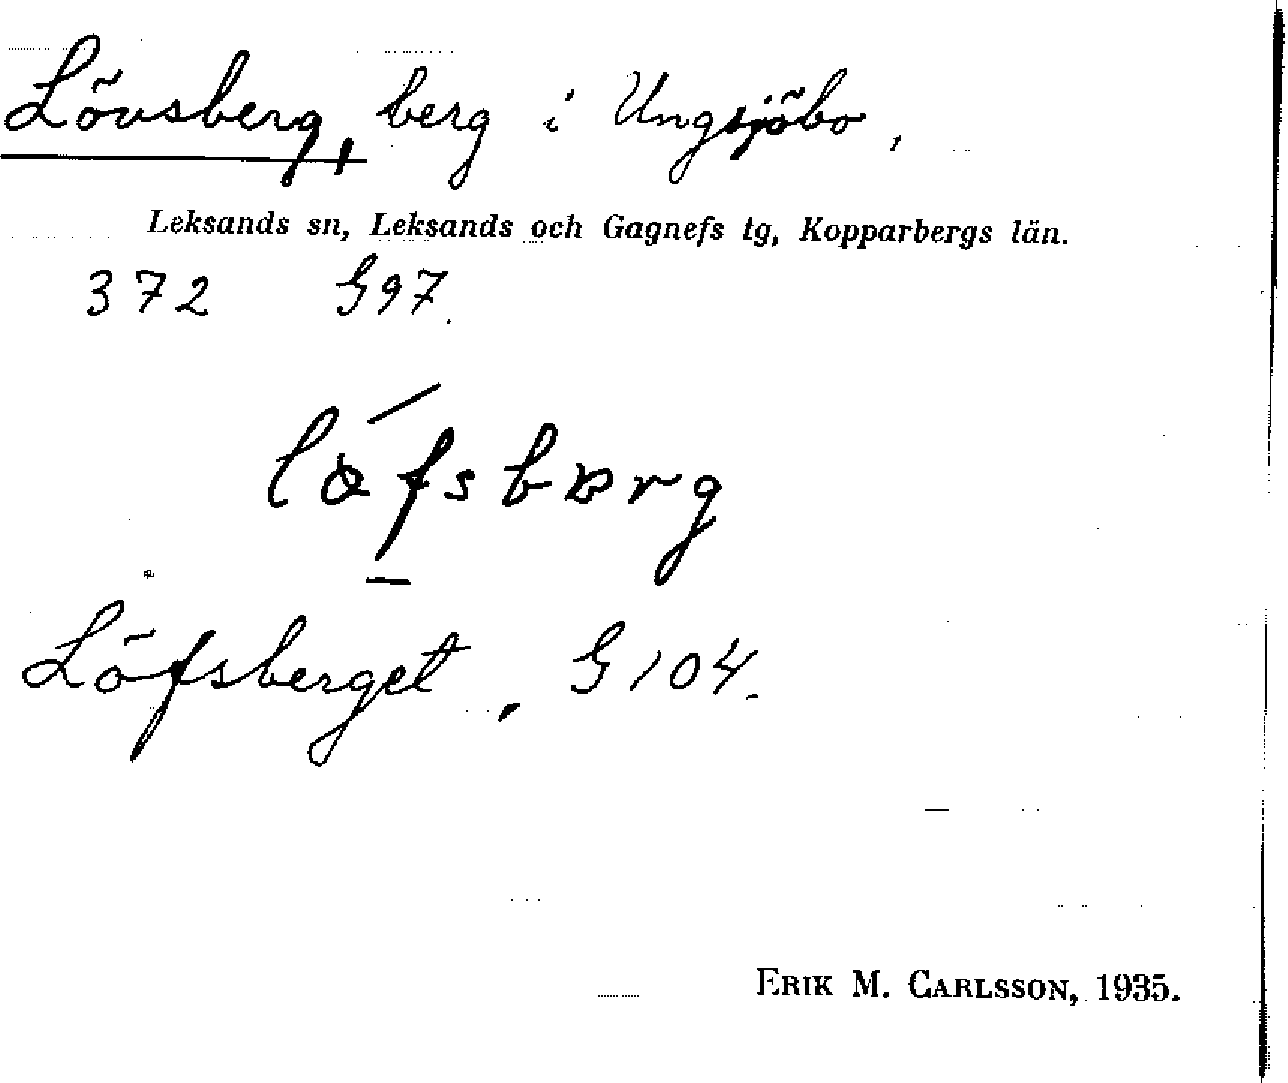 Lövsberg, berg i Ungsjöbo,
Leksands sn, Leksands och Gagnefs tg, Kopparbergs län.
372 G97.
Löfsberget, G104.
ERIK M. CARLSSON, 1935.